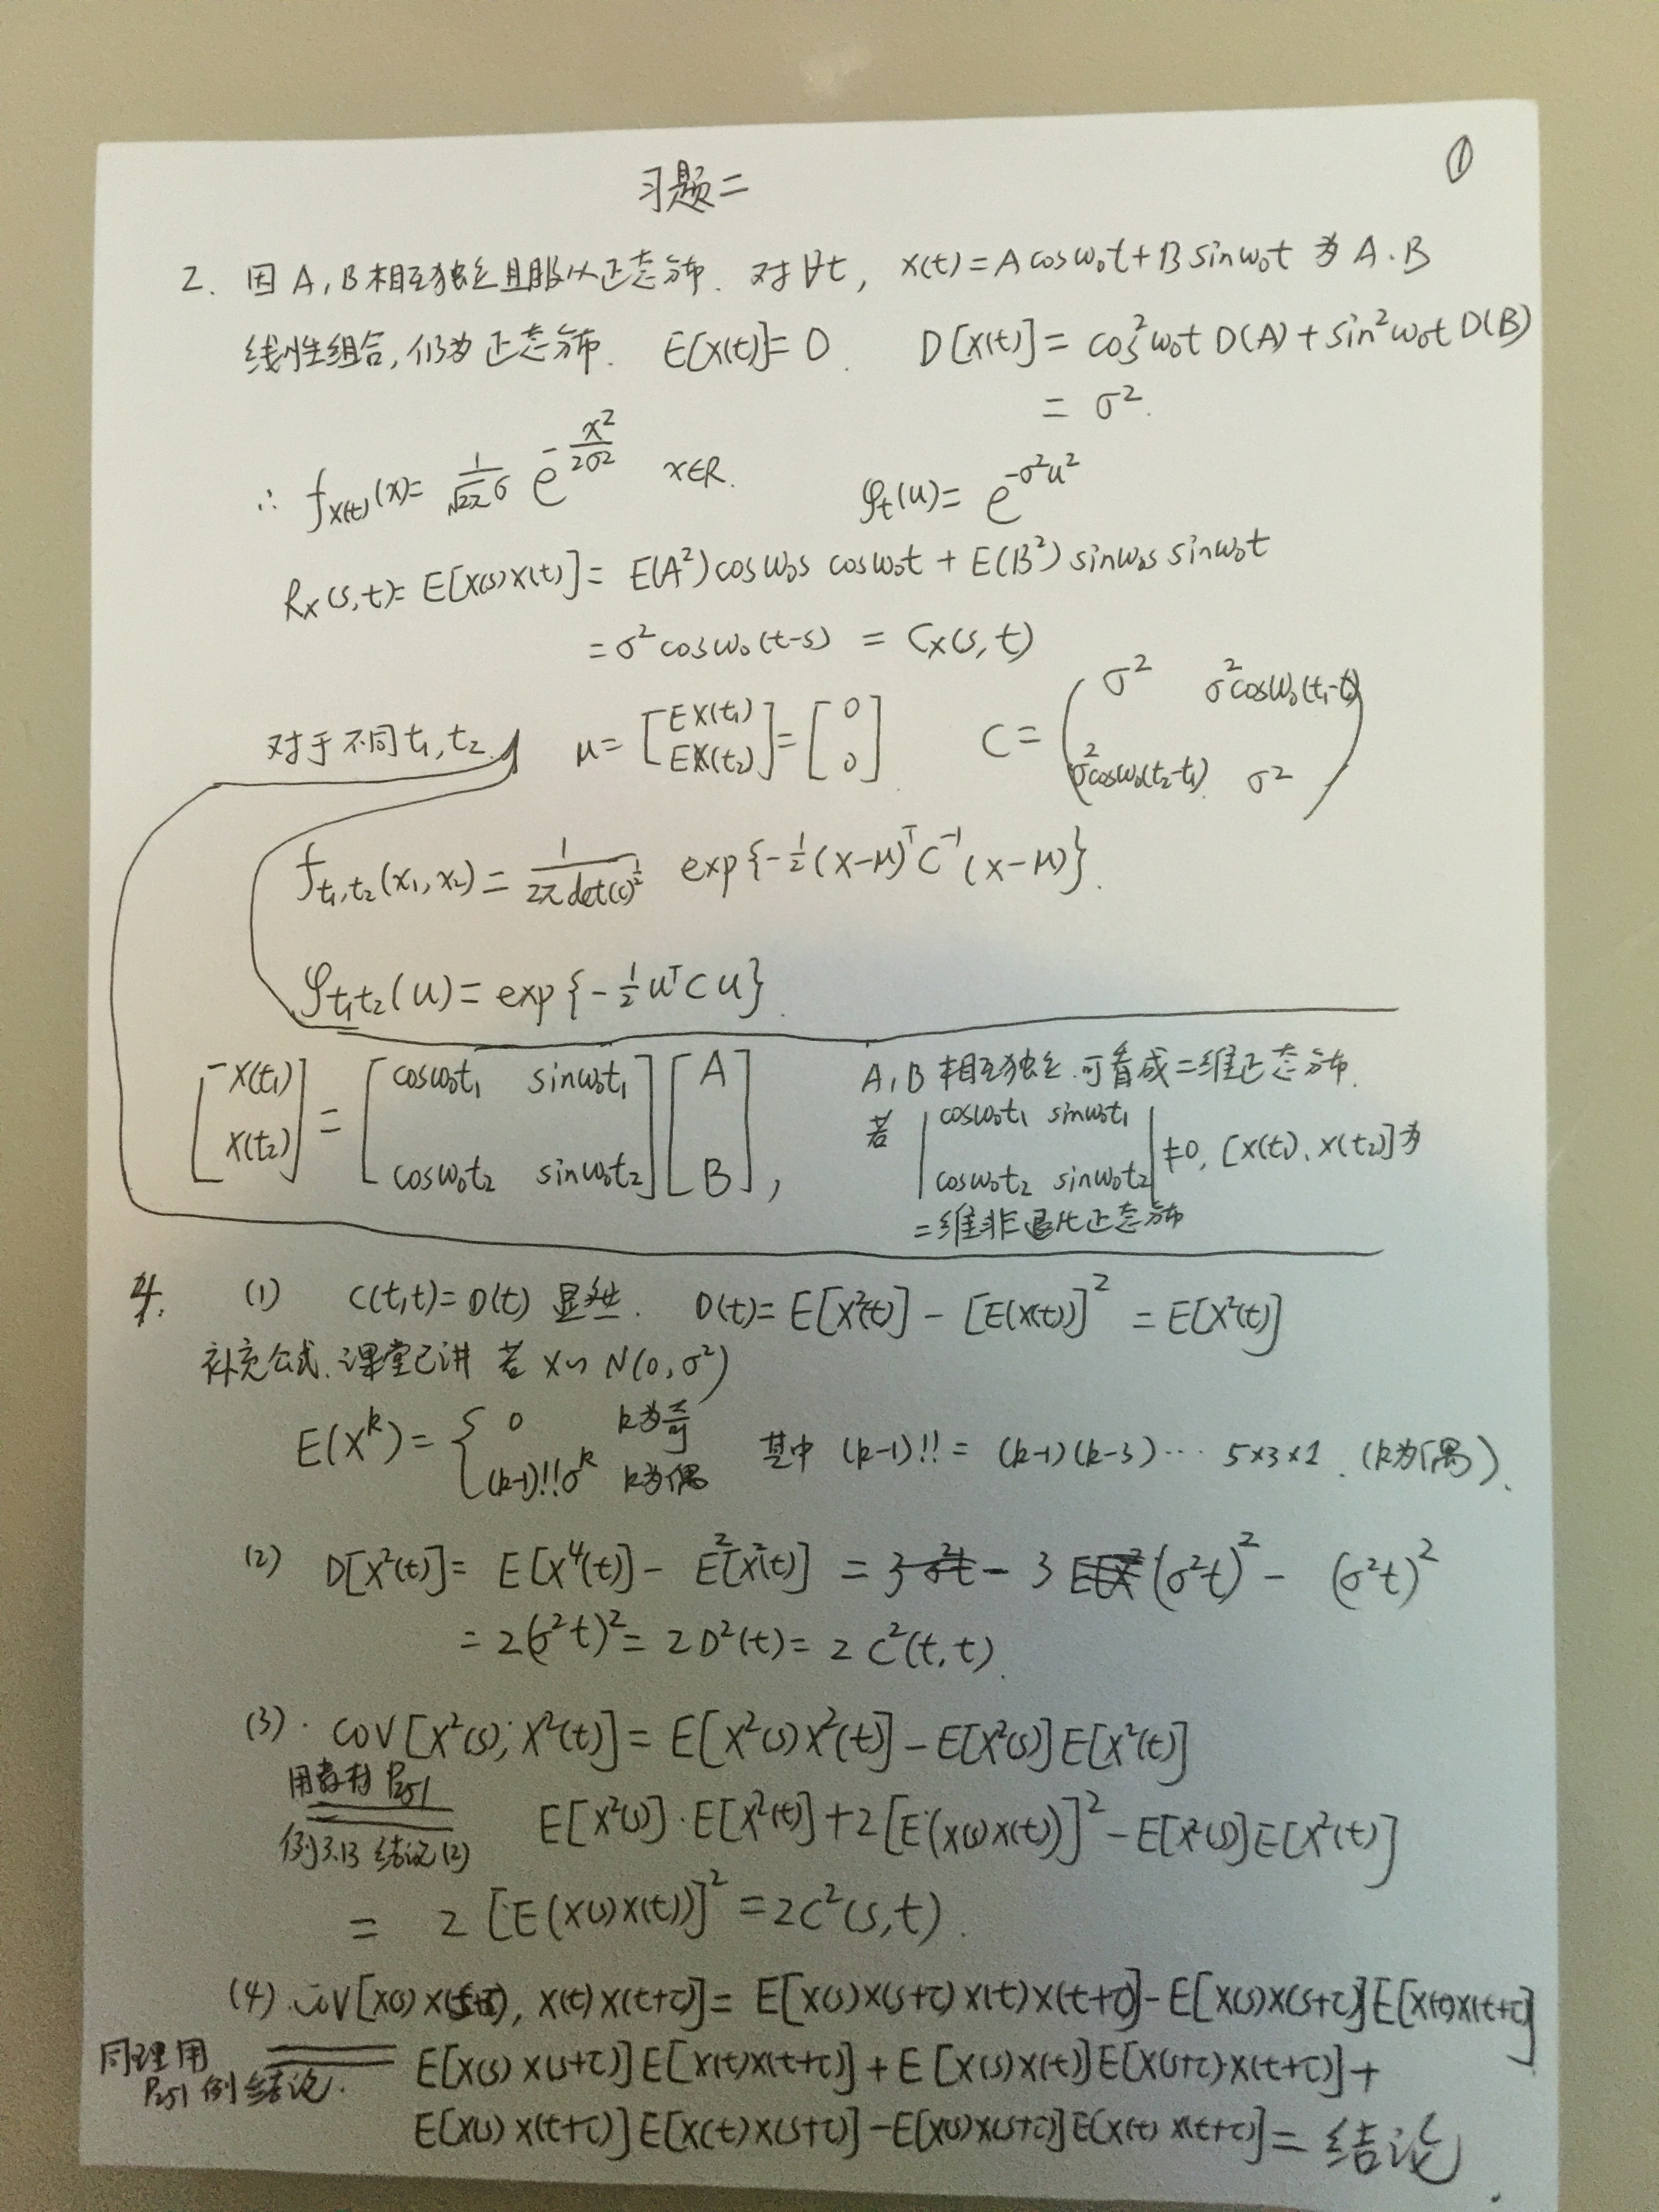 ①
习题二
2. 因A,B相互独立且服从正态分布. 对∀t, X(t)=Acosω₀t+Bsinω₀t 为A.B
线性组合,仍为正态分布. E[X(t)]=0. D[X(t)]=cos²ω₀t D(A)+sin²ω₀t D(B)
=σ².
∴ f_{X(t)}(x)=\frac{1}{\sqrt{2π}σ} e^{-\frac{x²}{2σ²}} x∈R. φ_t(u)=e^{-σ²u²}
R_X(s,t)=E[X(s)X(t)]=E(A²)cosω₀s cosω₀t+E(B²)sinω₀s sinω₀t
=σ²cosω₀(t-s) = C_X(s,t)
对于不同t₁,t₂. μ=\begin{bmatrix}EX(t₁)\\EX(t₂)\end{bmatrix}=\begin{bmatrix}0\\0\end{bmatrix} C=\begin{pmatrix}σ² & σ²cosω₀(t₁-t₂)\\σ²cosω₀(t₂-t₁) & σ²\end{pmatrix}
f_{t₁,t₂}(x₁,x₂)=\frac{1}{2π det(C)^{\frac{1}{2}}} exp{-\frac{1}{2}(x-μ)^T C^{-1}(x-μ)}.
φ_{t₁t₂}(u)=exp{-\frac{1}{2}u^T C u}.
\begin{bmatrix}X(t₁)\\X(t₂)\end{bmatrix}=\begin{bmatrix}cosω₀t₁ & sinω₀t₁\\cosω₀t₂ & sinω₀t₂\end{bmatrix}\begin{bmatrix}A\\B\end{bmatrix},
A,B相互独立.可看成二维正态分布.
若 \begin{vmatrix}cosω₀t₁ & sinω₀t₁\\cosω₀t₂ & sinω₀t₂\end{vmatrix}≠0, [X(t₁)、X(t₂)]为
二维非退化正态分布
4. (1) C(t,t)=D(t) 显然. D(t)=E[X²(t)]-[E(X(t))]²=E[X²(t)]
补充公式.课堂已讲 若 X∽N(0,σ²)
E(X^k)=\begin{cases}0 & k为奇\\(k-1)!!σ^k & k为偶\end{cases} 其中 (k-1)!!=(k-1)(k-3)⋯ 5×3×1. (k为偶).
(2) D[X²(t)]=E[X⁴(t)]-E²[X²(t)]=3(σ²t)²-(σ²t)²
=2(σ²t)²=2D²(t)=2C²(t,t).
(3). COV[X²(s), X²(t)]=E[X²(s)X²(t)]-E[X²(s)]E[X²(t)]
用教材P₂₅₁
例3.13 结论(2)
E[X²(s)]·E[X²(t)]+2[E(X(s)X(t))]²-E[X²(s)]E[X²(t)]
= 2[E(X(s)X(t))]²=2C²(s,t).
(4) COV[X(s)X(s+τ), X(t)X(t+τ)]=E[X(s)X(s+τ)X(t)X(t+τ)]-E[X(s)X(s+τ)]E[X(t)X(t+τ)]
同理用
P₂₅₁例结论.
E[X(s)X(s+τ)]E[X(t)X(t+τ)]+E[X(s)X(t)]E[X(s+τ)X(t+τ)]+
E[X(s)X(t+τ)]E[X(t)X(s+τ)]-E[X(s)X(s+τ)]E[X(t)X(t+τ)]=结论.